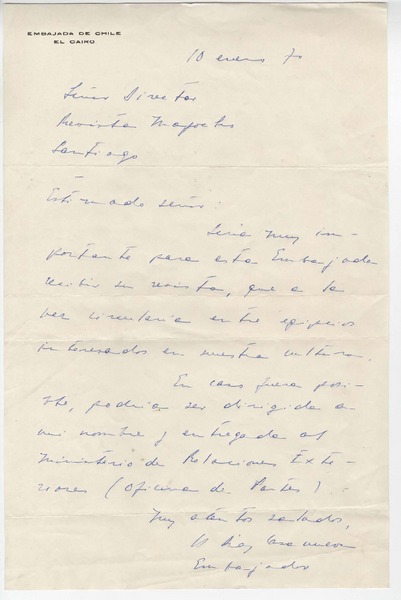 EMBAJADA DE CHILE
EL CAIRO
10 enero 70
Señor Director
Revista Mapocho
Santiago
Estimado señor:
Sería muy im-
portante para esta Embajada
recibir su revista, que a la
vez circularía entre egipcios
interesados en nuestra cultura.
En caso fuera posi-
ble, podría ser dirigida a
mi nombre y entregada al
Ministerio de Relaciones Exte-
riores (Oficina de Partes)
Muy atentos saludos,
H Díaz Casanueva
Embajador